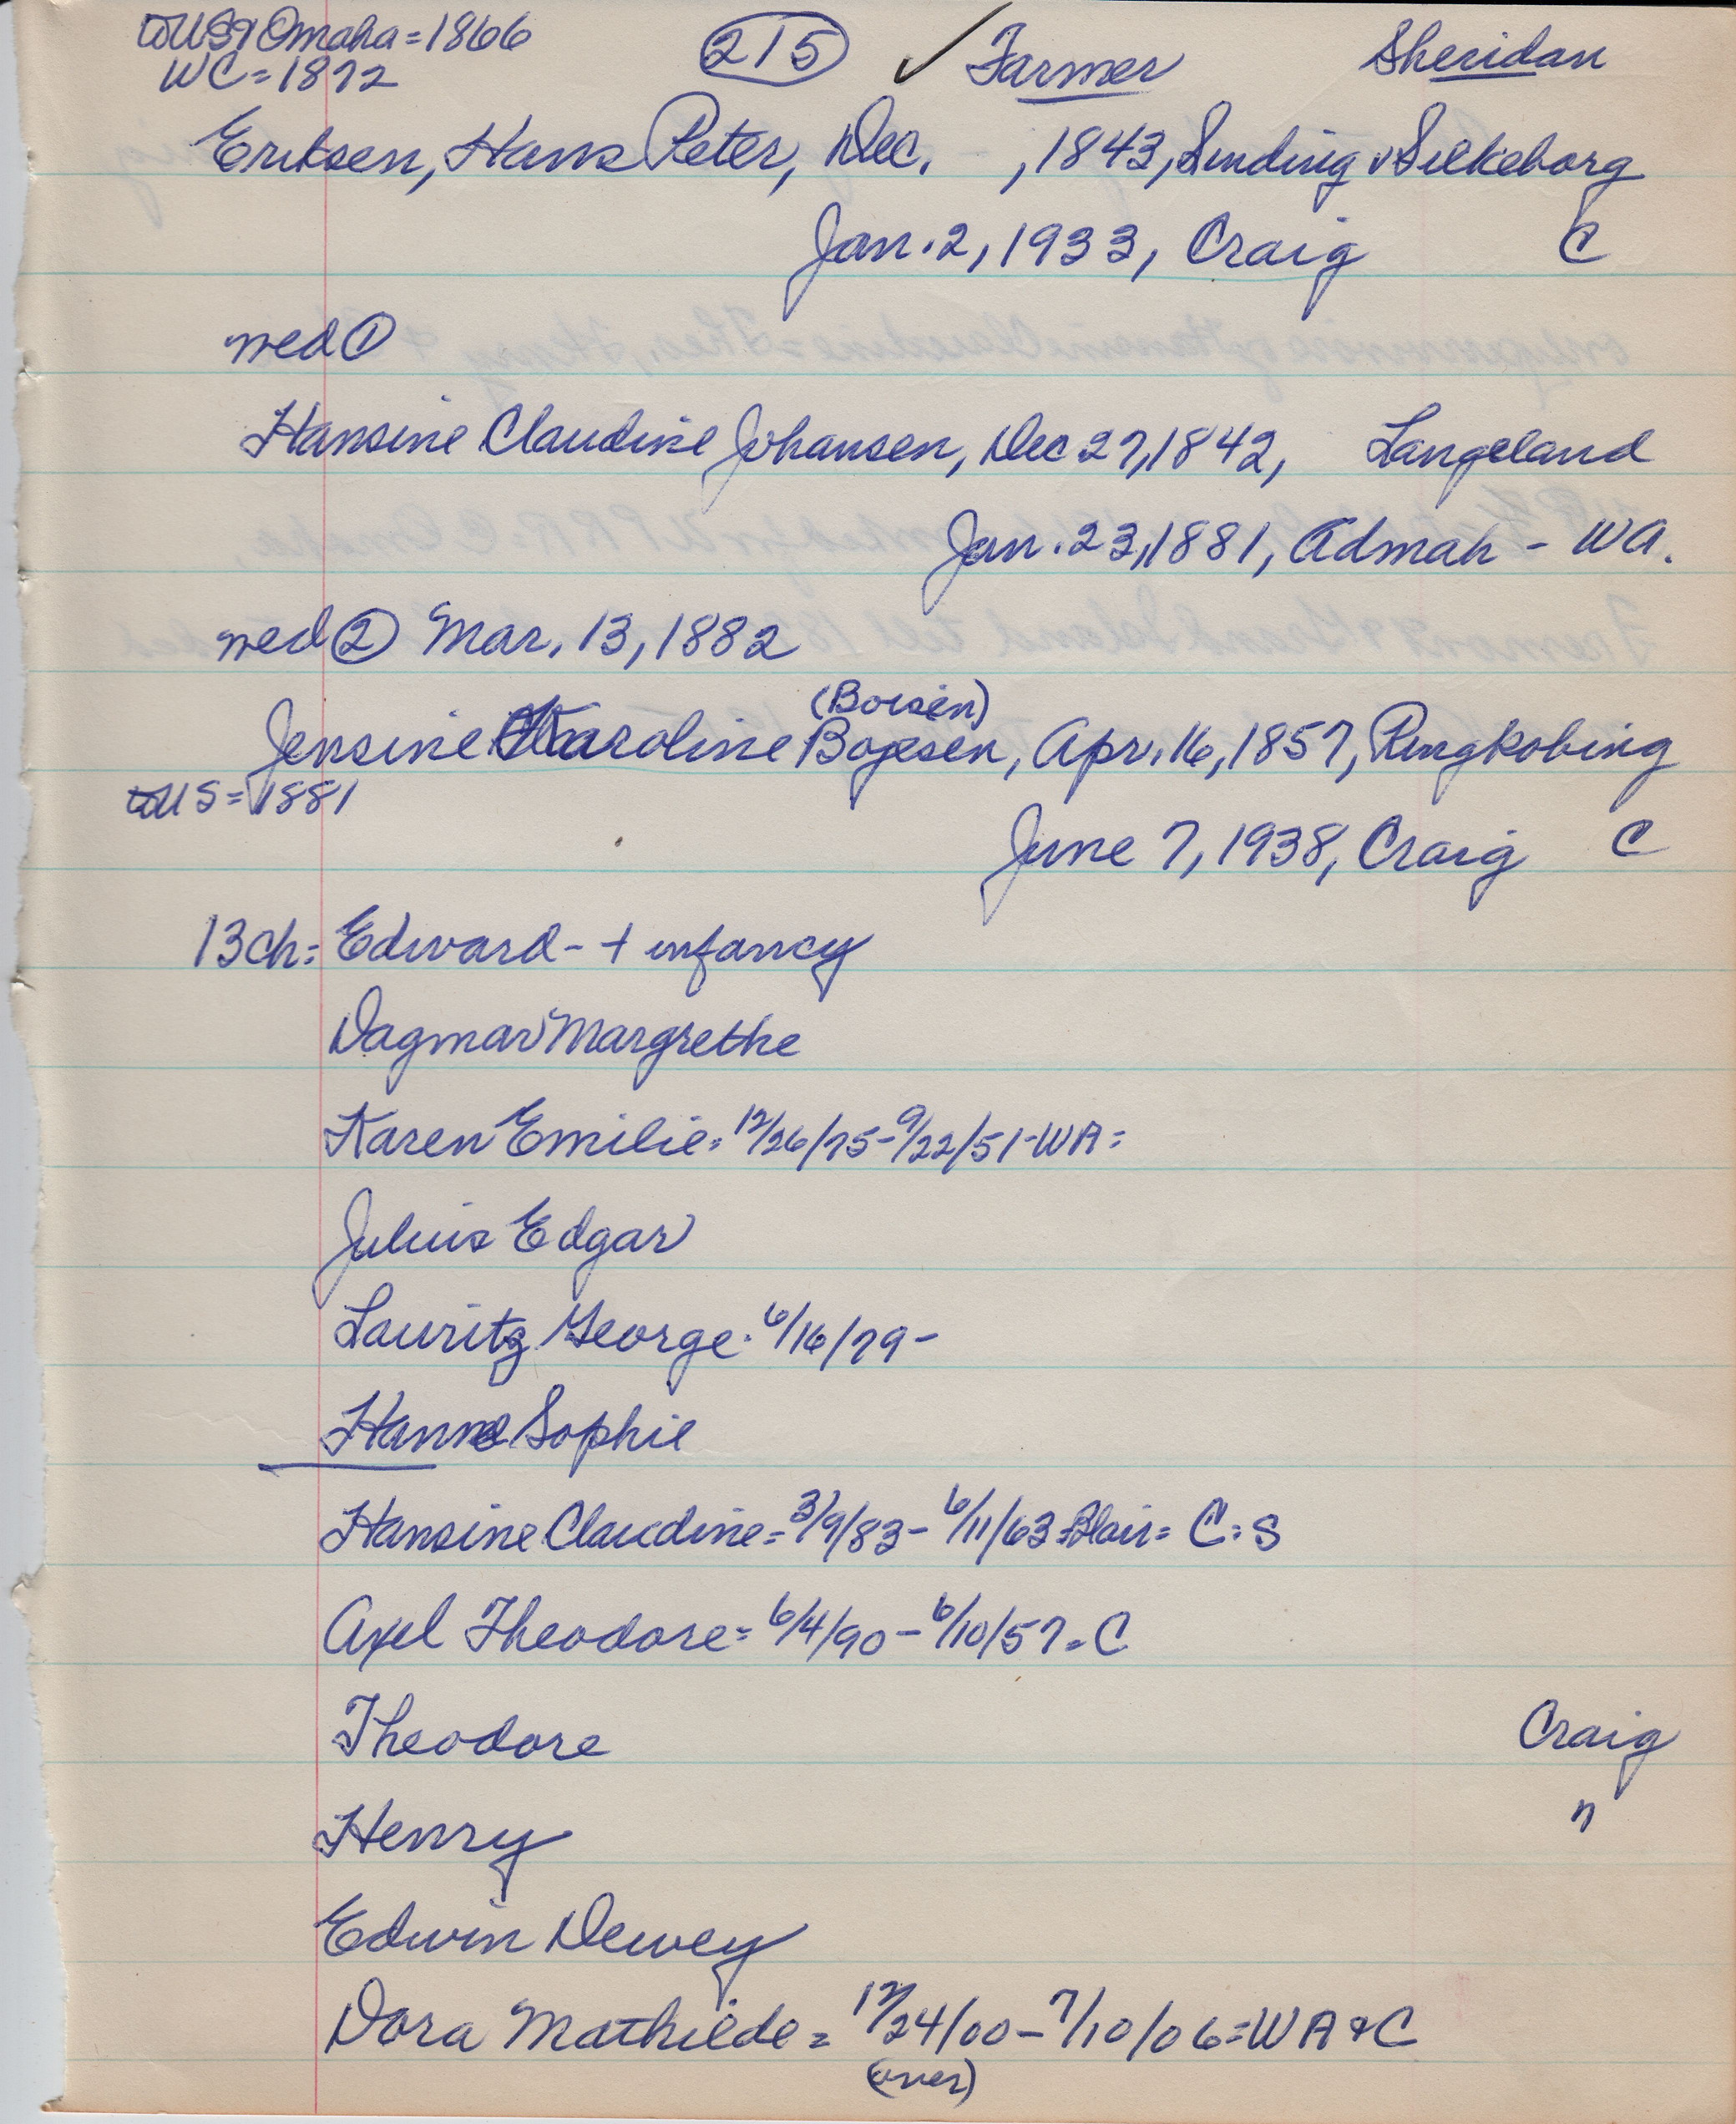 to US & Omaha = 1866
WC = 1872
215 ✓ Farmer Sheridan
Eriksen, Hans Peter, Dec. , 1843, Sinding v Silkeborg
Jan. 2, 1933, Craig C
med ①
Hansine Claudine Johansen, Dec 27, 1842, Langeland
Jan. 23, 1881, Admah - WA.
med ② Mar. 13, 1882
(Boisen)
Jensine Karoline Bojesen, Apr. 16, 1857, Ringkobing
to US = 1881
June 7, 1938, Craig C
13 ch: Edward - + infancy
Dagmar Margrethe
Karen Emilie = 12/26/75 - 9/22/51 - WA =
Julius Edgar
Lauritz George = 6/16/79 -
Hanne Sophie
Hansine Claudine = 3/9/83 - 6/11/63 = Blair = C = S
Axel Theodore = 6/4/90 - 6/10/57 = C
Theodore Craig
Henry "
Edwin Dewey
Dora Mathilde = 12/24/00 - 7/10/06 = WA & C
(over)